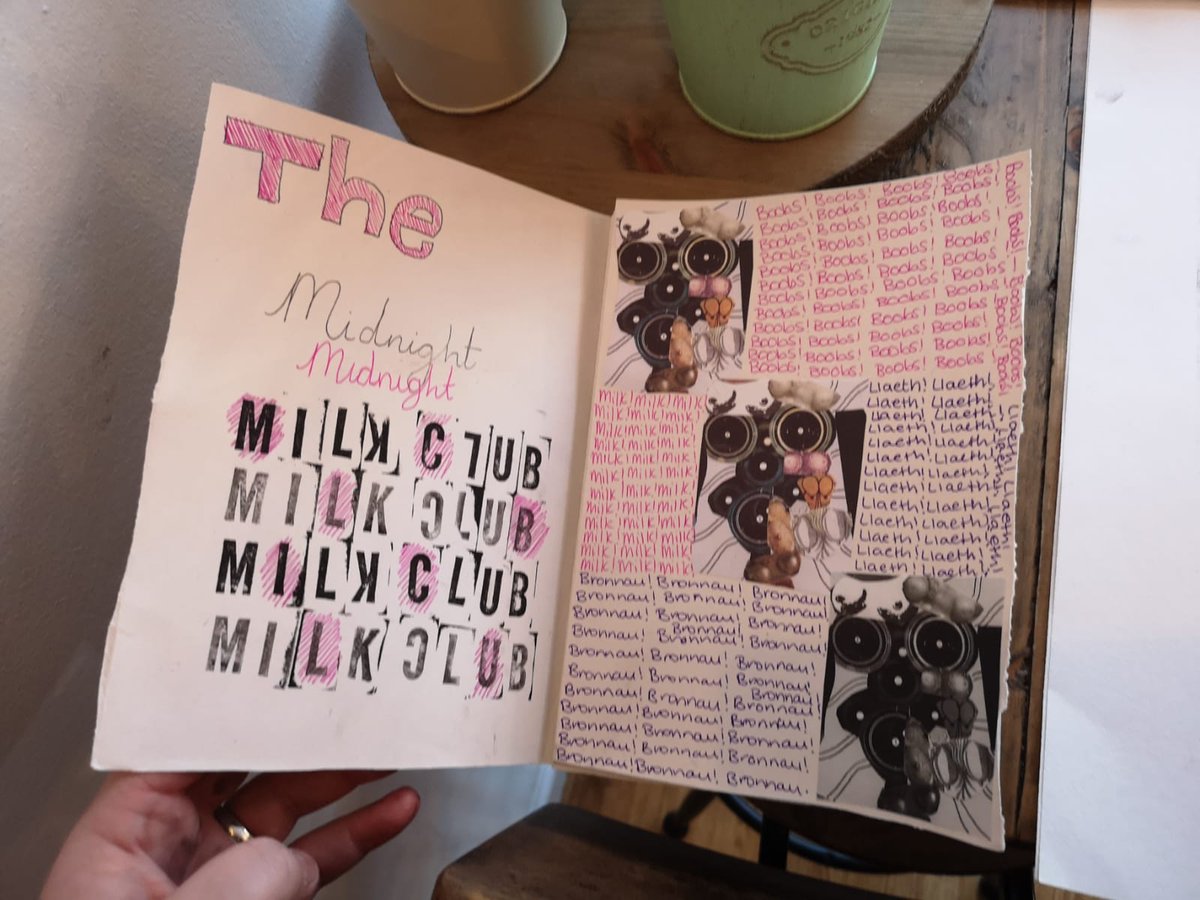 ORIGI
1982
The
Midnight
Midnight
MILK CLUB
MILK CLUB
MILK CLUB
MILK CLUB
Boobs! Boobs! Boobs! Boobs!
Boobs! Boobs! Boobs! Boobs!
Boobs! Boobs! Boobs! Boobs!
Boobs! Boobs! Boobs! Boobs!
Boobs! Boobs! Boobs! Boobs!
Boobs! Boobs! Boobs! Boobs!
Boobs! Boobs! Boobs! Boobs!
Boobs! Boobs! Boobs! Boobs!
Boobs! Boobs! Boobs! Boobs!
Boobs! Boobs! Boobs! Boobs!
Boobs! Boobs! Boobs! Boobs!
Boobs! Boobs! Boobs! Boobs!
Boobs! Boobs! Boobs! Boobs!
Boobs! Boobs!
Milk! Milk! Milk!
Milk! Milk! Milk!
Milk! Milk! Milk!
Milk! Milk! Milk!
Milk! Milk! Milk!
Milk! Milk! Milk!
Milk! Milk! Milk!
Milk! Milk! Milk!
Milk! Milk! Milk!
Milk! Milk! Milk!
Milk! Milk! Milk!
Milk! Milk! Milk!
Llaeth! Llaeth!
Llaeth! Llaeth!
Llaeth! Llaeth!
Llaeth! Llaeth!
Llaeth! Llaeth!
Llaeth! Llaeth!
Llaeth! Llaeth!
Llaeth! Llaeth!
Llaeth! Llaeth!
Llaeth! Llaeth!
Llaeth! Llaeth!
Llaeth! Llaeth!
Llaeth! Llaeth!
Llaeth! Llaeth! Llaeth!
Llaeth! Llaeth!
Bronnau! Bronnau! Bronnau!
Bronnau! Bronnau! Bronnau!
Bronnau! Bronnau! Bronnau!
Bronnau! Bronnau! Bronnau!
Bronnau! Bronnau! Bronnau!
Bronnau! Bronnau! Bronnau!
Bronnau! Bronnau! Bronnau!
Bronnau! Bronnau! Bronnau!
Bronnau! Bronnau! Bronnau!
Bronnau! Bronnau! Bronnau!
Bronnau! Bronnau! Bronnau!